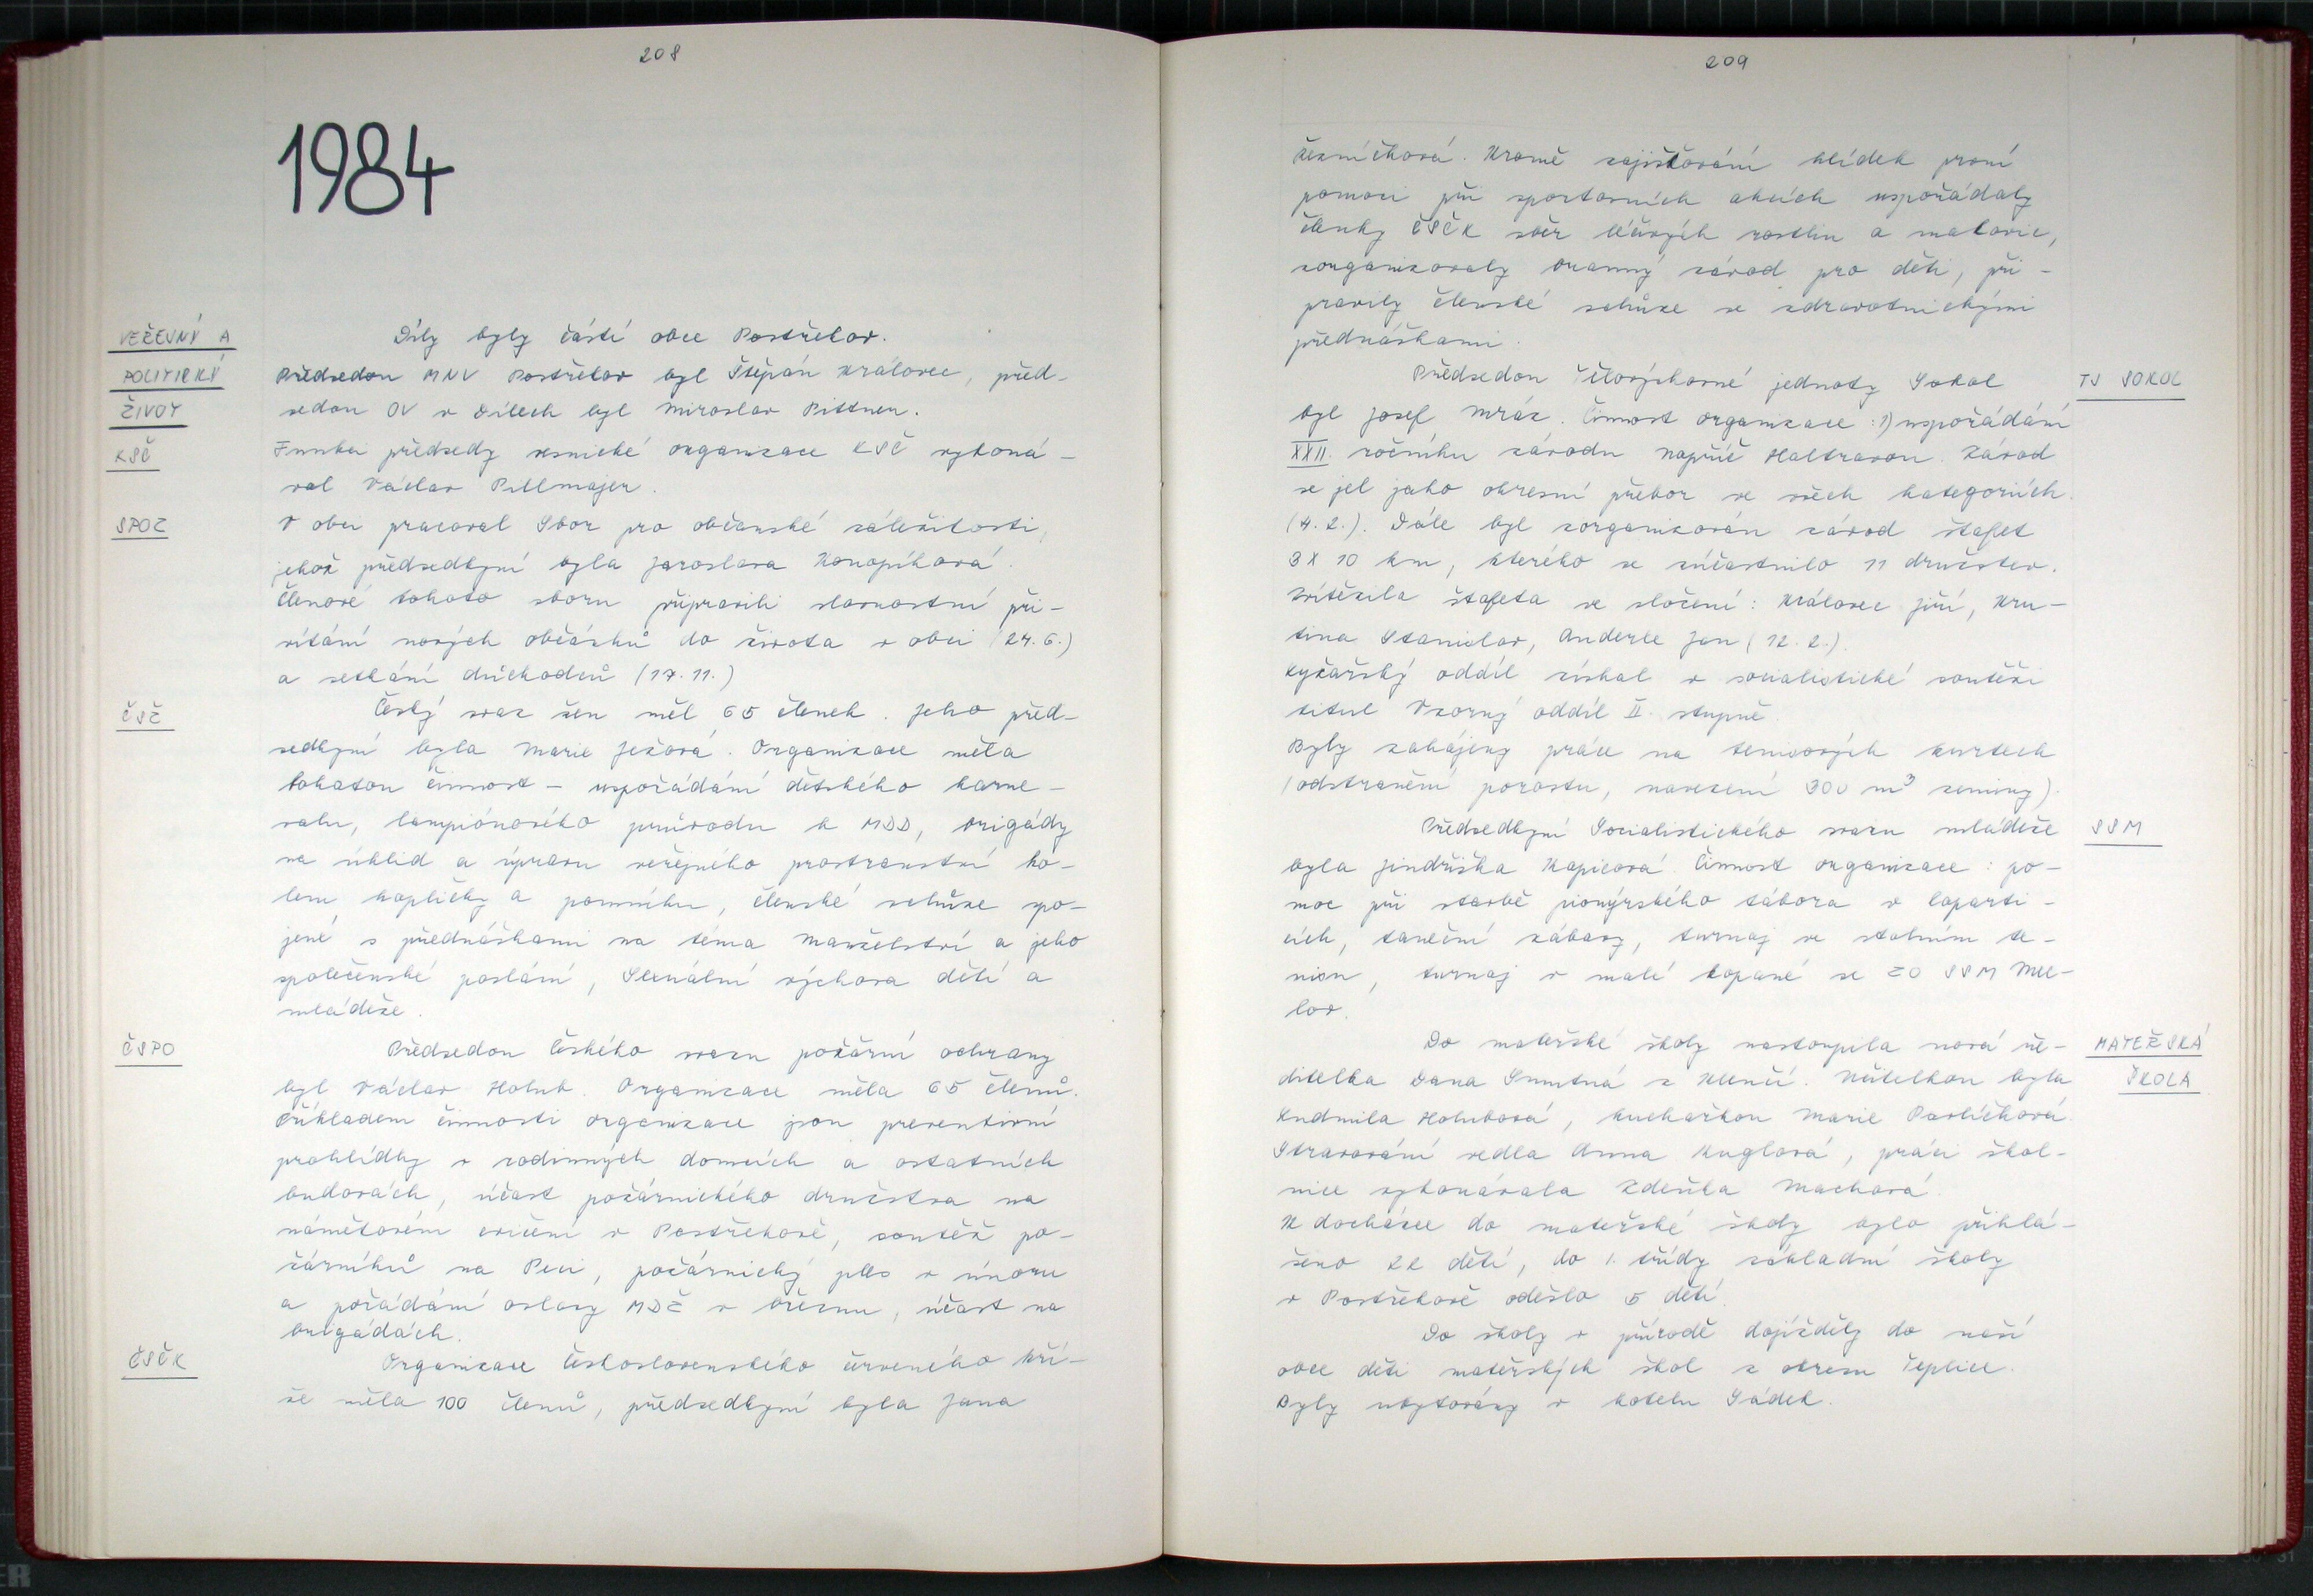 208
1984
VEŘEJNÝ A
Díly byly částí obce Postřekov.
POLITICKÝ
Předsedou MNV Postřekov byl Štěpán Královec, před-
ŽIVOT
sedou OV v Dílech byl Miroslav Bittner.
KSČ
Funkci předsedy vesnické organizace KSČ vykoná-
val Václav Pillmajer.
SPOZ
V obci pracoval Sbor pro občanské záležitosti,
jehož předsedkyní byla Jaroslava Konopíková.
Členové tohoto sboru připravili slavnostní při-
vítání nových občánků do života v obci (24.6.)
a setkání důchodců (17.11.)
ČSŽ
Český svaz žen měl 65 členek. Jeho před-
sedkyní byla Marie Ježová. Organizace měla
tohoton činnost - uspořádání dětského karne-
valu, lampiónového průvodu k MDD, brigády
na úklid a úpravu veřejného prostranství ko-
lem kapličky a pomníku, členské schůze spo-
jené s přednáškami na téma Manželství a jeho
společenské poslání, Sexuální výchova dětí a
mládeže.
ČSPO
Předsedou Českého svazu požární ochrany
byl Václav Holub. Organizace měla 65 členů.
Příkladem činnosti organizace jsou preventivní
prohlídky v rodinných domcích a ostatních
budovách, účast požárnického družstva na
námětovém cvičení v Postřekově, soutěž po-
žárníků na Peci, požárnický ples v únoru
a pořádání oslavy MDŽ v březnu, účast na
brigádách.
ČSČK
Organizace Československého červeného kří-
že měla 100 členů, předsedkyní byla Jana
209
Řezníčková. Kromě zajišťování hlídek první
pomoci při sportovních akcích uspořádaly
členky ČSČK sběr léčivých rostlin a malovic,
zorganizovaly branný závod pro děti, při-
pravily členské schůze se zdravotnickými
přednáškami.
Předsedou Tělovýchovné jednoty Sokol
TJ SOKOL
byl Josef Mráz. Činnost organizace: 1) uspořádání
XXII. ročníku závodu napříč Haltravou. Závod
se jel jako okresní přebor ve všech kategoriích.
(4.2.). Dále byl zorganizován závod štafet
3x10 km, kterého se zúčastnilo 11 družstev.
Zvítězila štafeta ve složení: Královec Jiří, Kru-
tina Stanislav, Anderle Jan (12.2.).
Lyžařský oddíl získal v socialistické soutěži
titul Vzorný oddíl II. stupně.
Byly zahájeny práce na tenisových kurtech
(odstranění porostu, navezení 300 m³ zeminy).
Předsedkyní Socialistického svazu mládeže
SSM
byla Jindřiška Kapicová. Činnost organizace: po-
moc při stavbě pionýrského tábora v Caparti-
cích, taneční zábavy, turnaj ve stolním te-
nisu, turnaj v malé kopané se ZO SSM Mee-
lov.
Do mateřské školy nastoupila nová ře-
MATEŘSKÁ
ditelka Dana Smutná z Klenčí. Učitelkou byla
ŠKOLA
Ludmila Holubová, kuchařkou Marie Pavlíčková.
Stravování vedla Anna Kuglová, práci škol-
nice vykonávala Zdeňka Machová.
K docházce do mateřské školy bylo přihlá-
šeno 22 dětí, do 1. třídy základní školy
v Postřekově odešlo 5 dětí.
Do školy v přírodě dojížděly do naší
obce děti mateřských škol z okresu Teplice.
Byly ubytovány v hotelu Sádek.